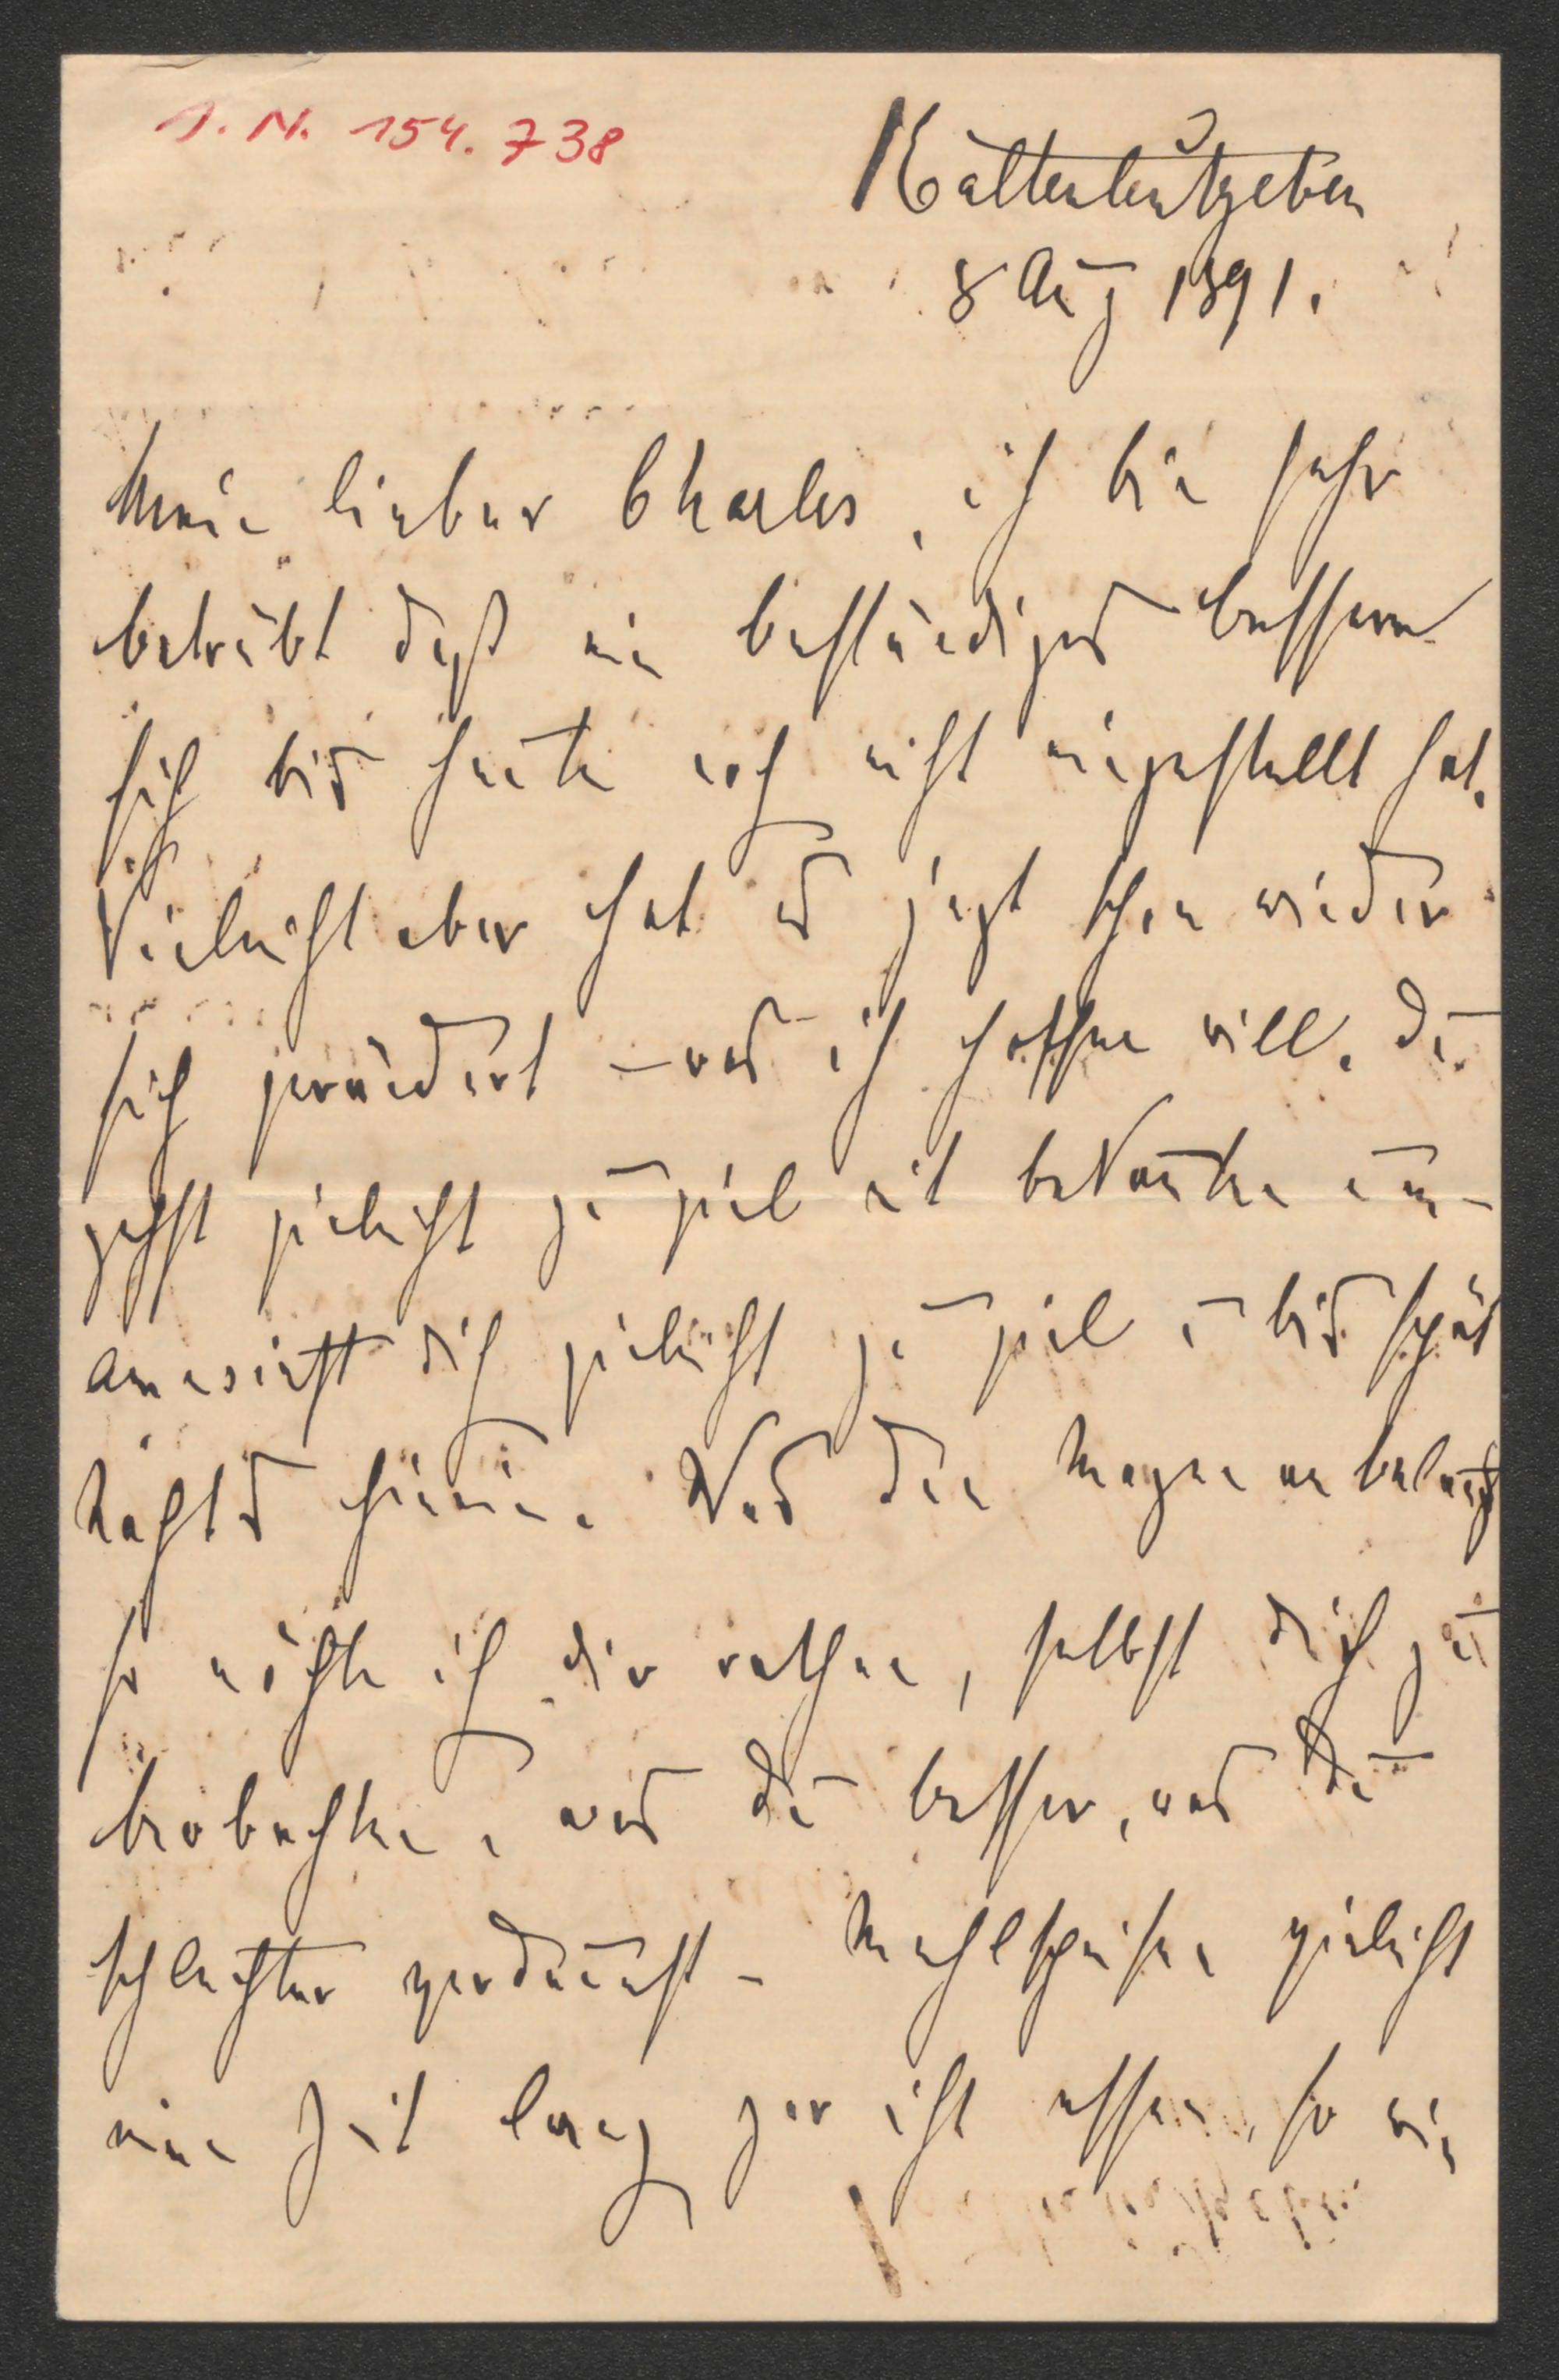 I. N. 154.738
Kaltenleutgeben
8 Aug 1891.
Mein lieber Charles, ich bin sehr
betrübt daß ein beständiges bessern
sich bis heute noch nicht eingestellt hat.
Vieleicht aber hat es jezt schon wieder
sich geändert – was ich hoffen will. Du
gehst vieleicht zu viel mit bekannten um –
amusirst dich vieleicht zu viel u bis spät
Nachts hinein. Was den Magen anbelangt
so möchte ich dir rathen, selbst dich zu
beobachten, was du besser, was du
schlechter verdaust – Mehlspeisen vieleicht
eine Zeit lang gar nicht essen, so wie